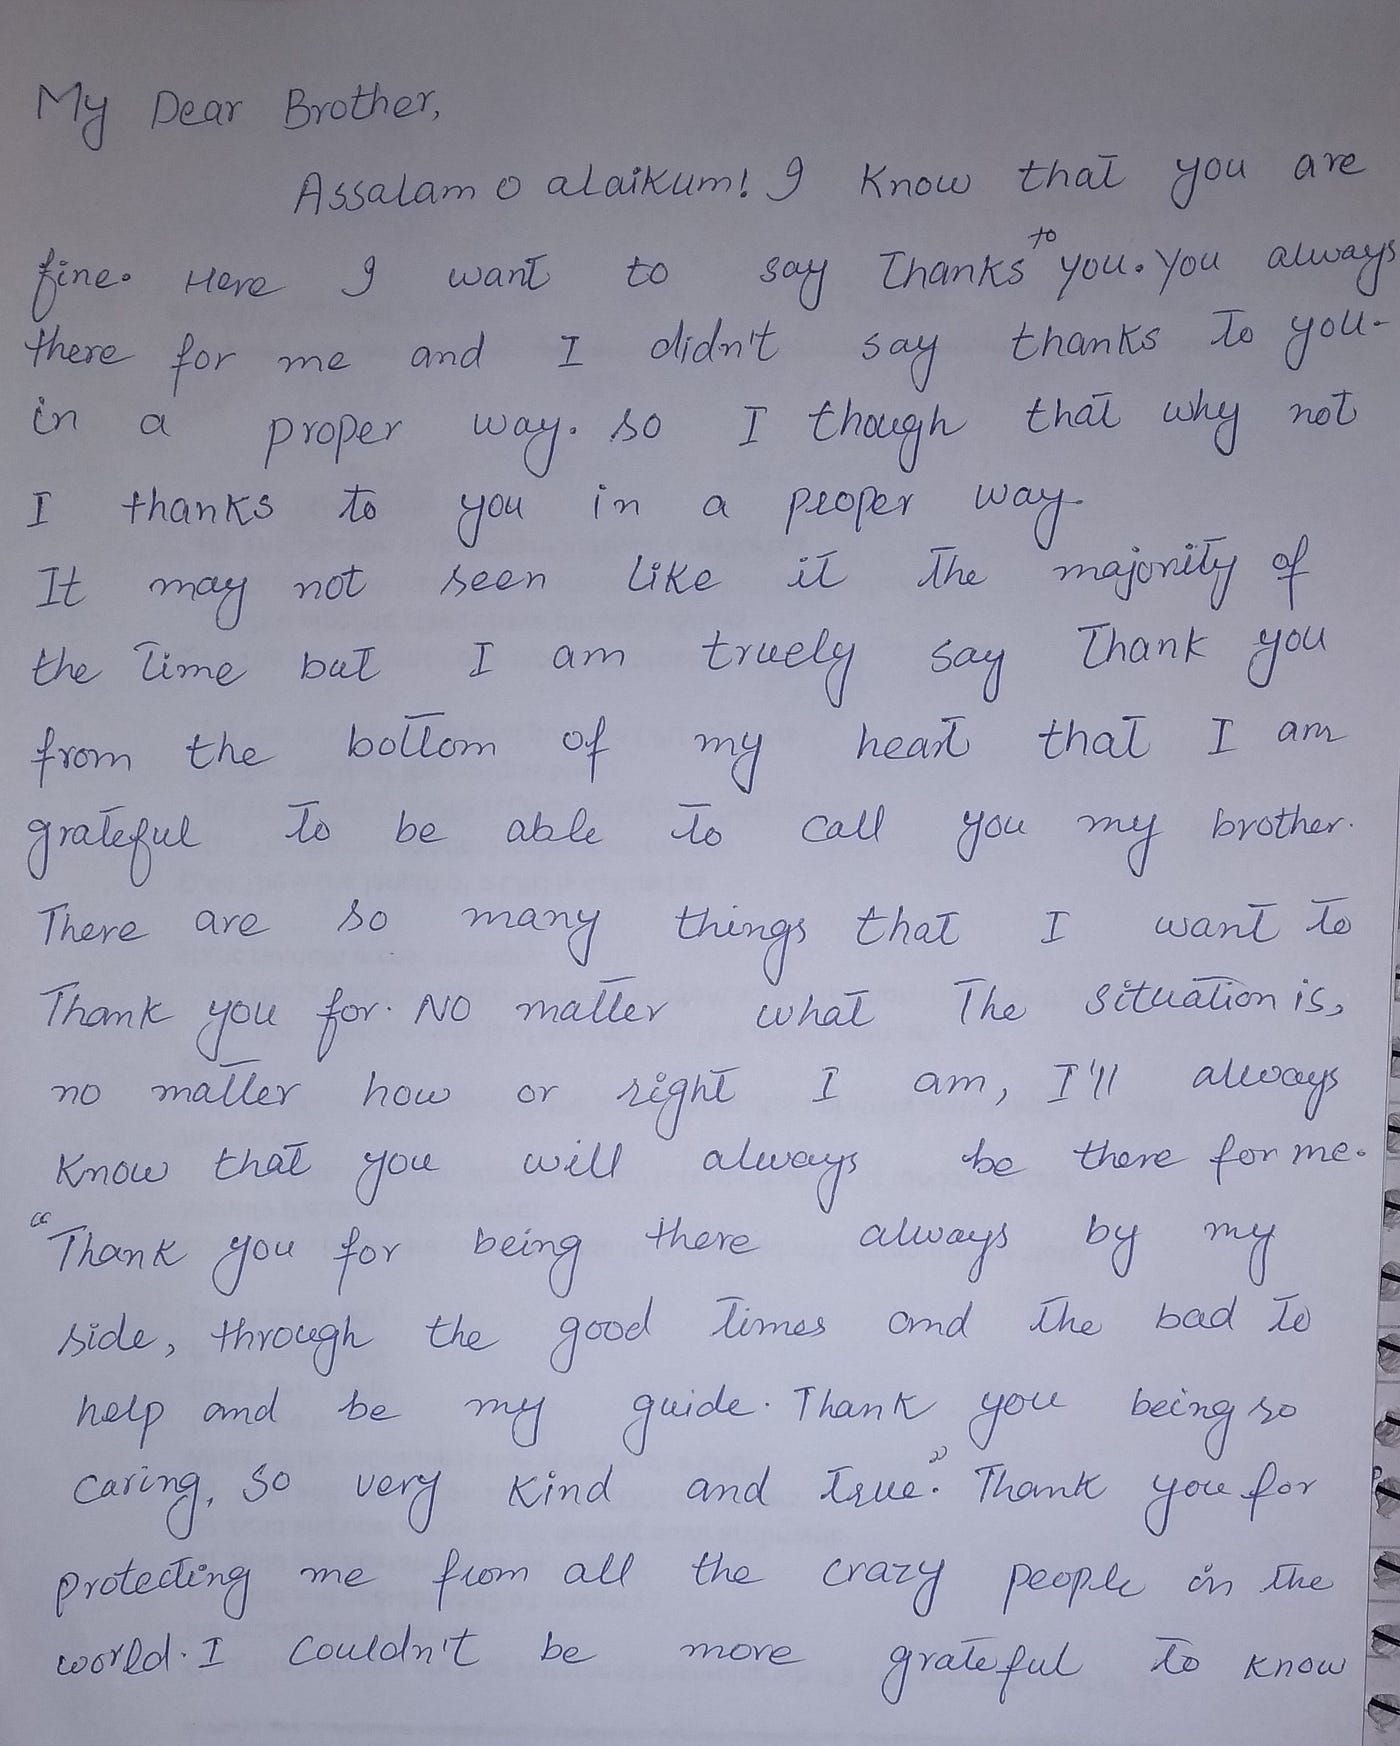 My Dear Brother,
Assalam o alaikum! I know that you are
fine. Here I want to say Thanks to you. You always
there for me and I didn't say thanks to you-
in a proper way. so I though that why not
I thanks to you in a proper way.
It may not seen like it the majority of
the time but I am truely say Thank you
from the bottom of my heart that I am
grateful to be able to call you my brother.
There are so many things that I want to
Thank you for. No matter what The situation is,
no matter how or right I am, I'll always
know that you will always be there for me.
"Thank you for being there always by my
side, through the good times and the bad to
help and be my guide. Thank you being so
caring, so very kind and true". Thank you for
protecting me from all the crazy people in the
world. I couldn't be more grateful to know